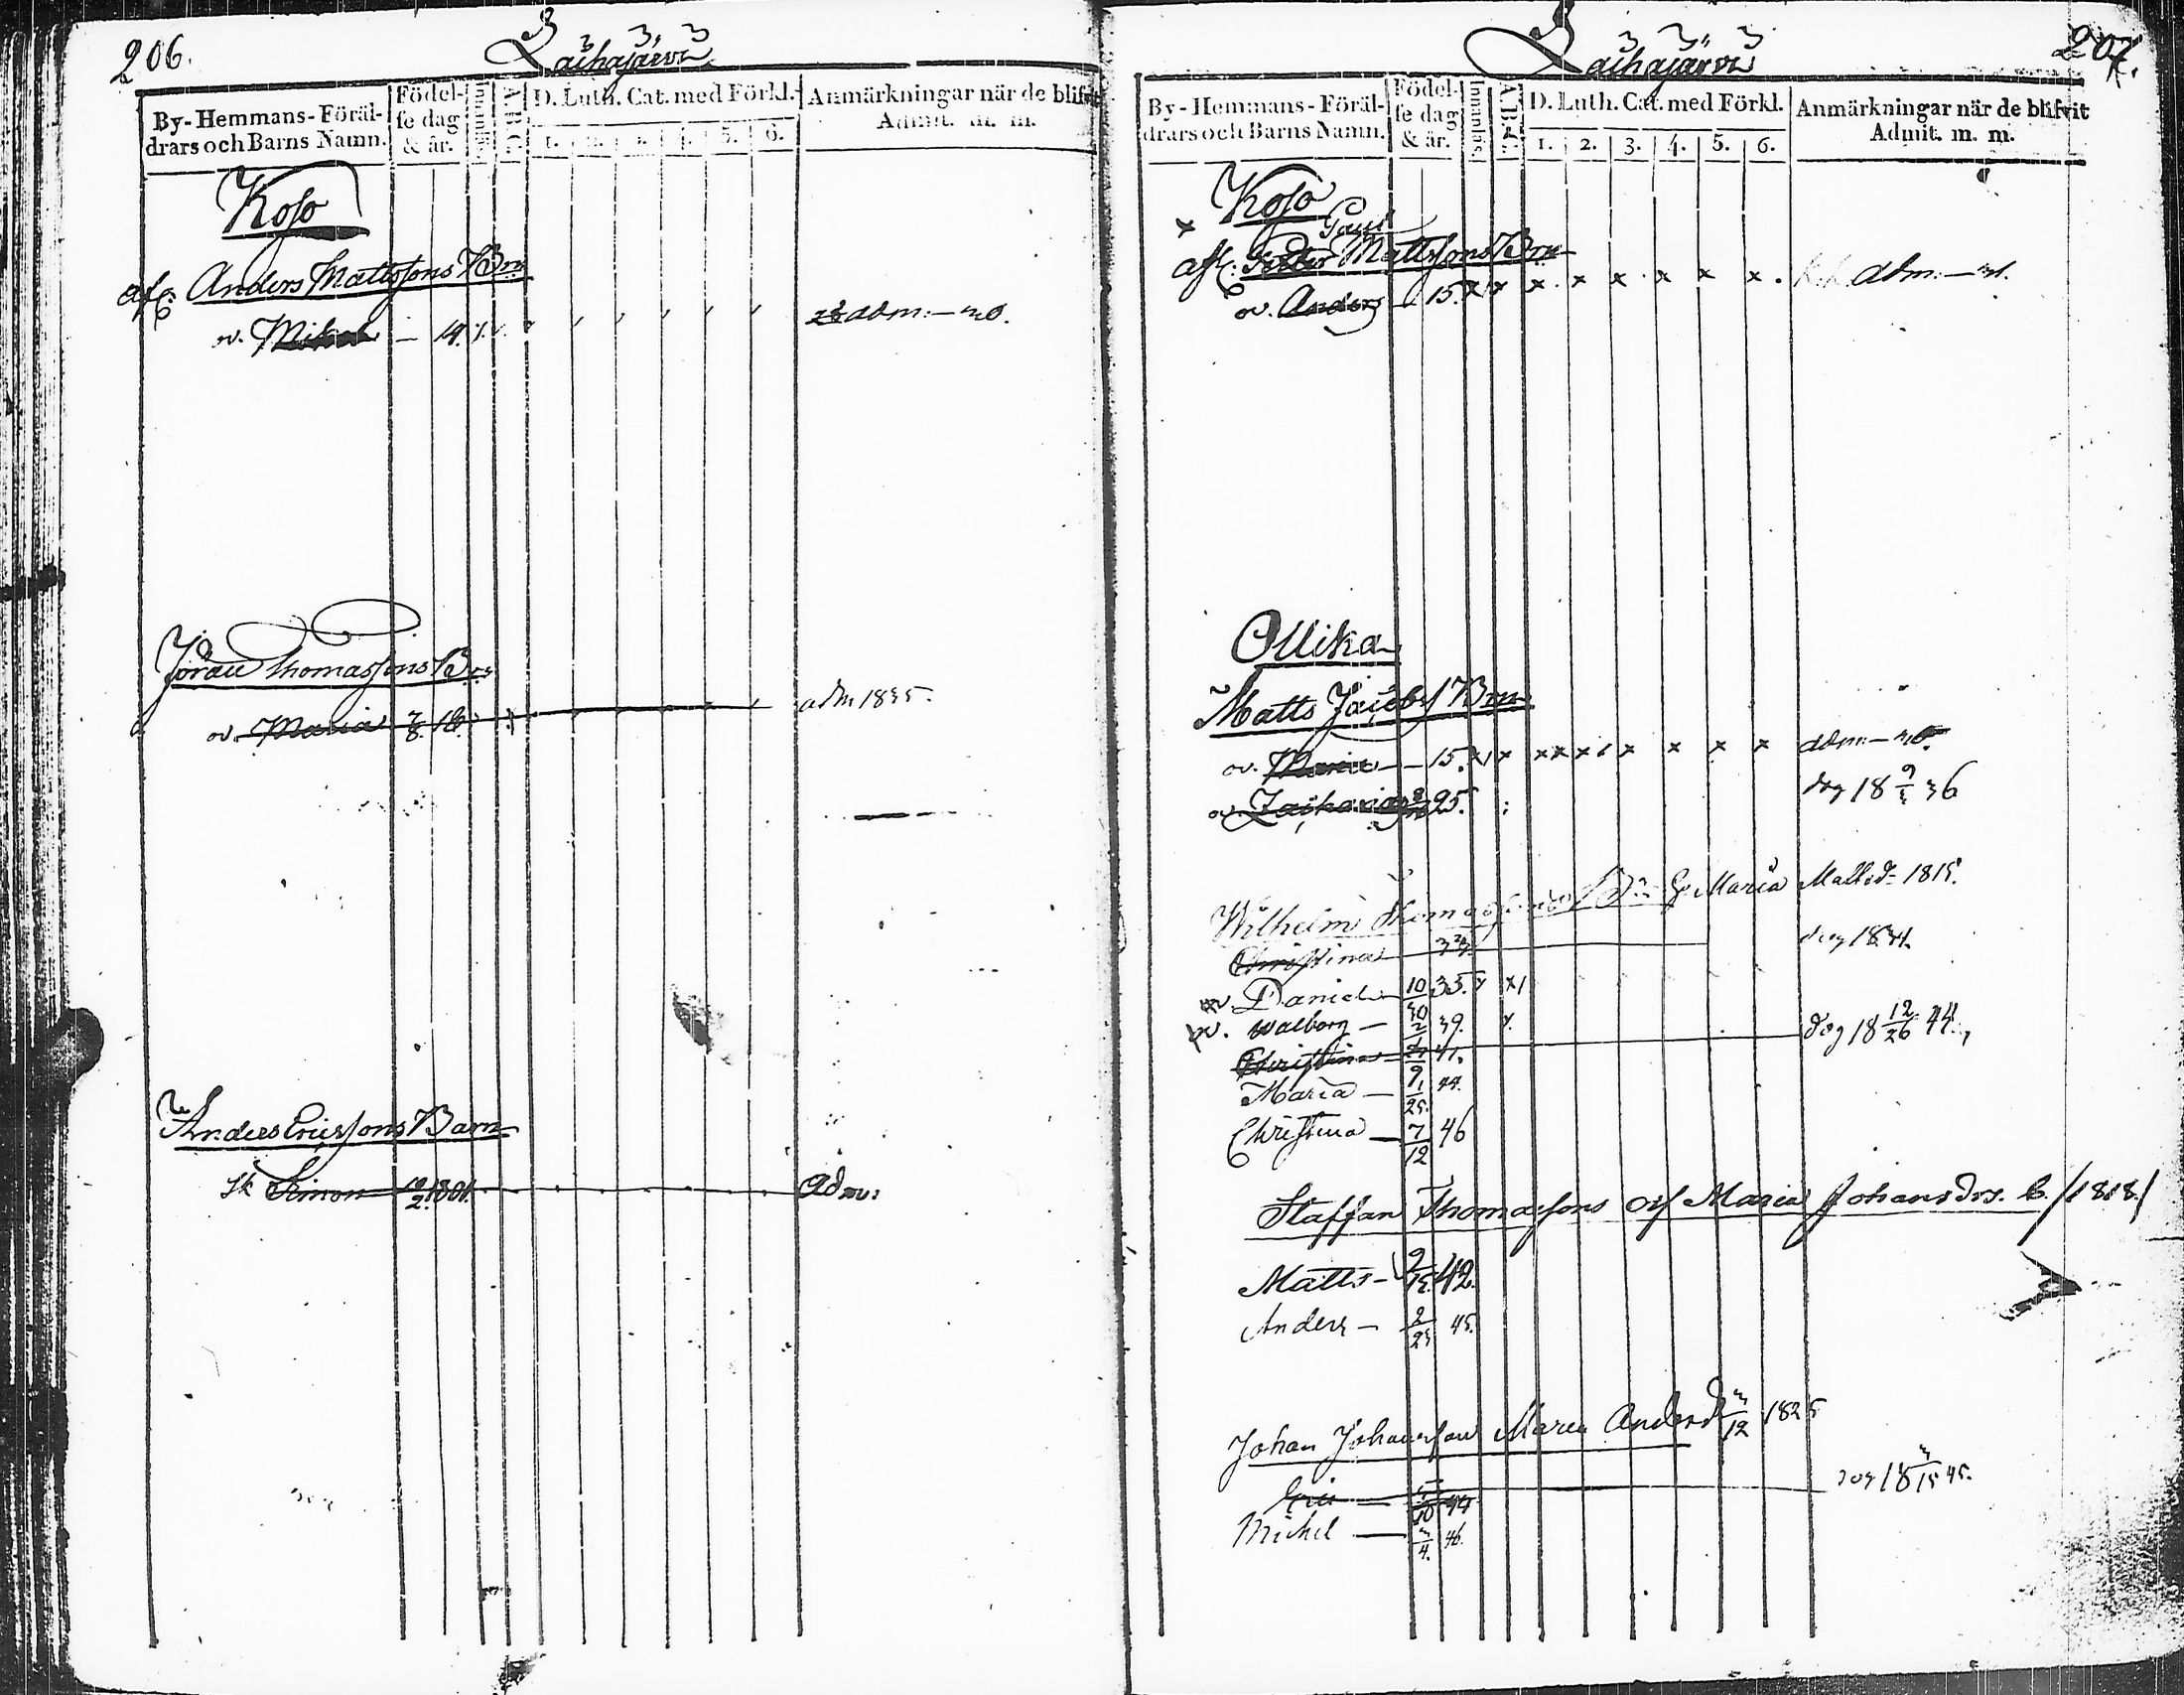 206.
Laihajärvi
By-Hemmans-Föräl-
drars och Barns Namn.
Födel-
se dag
& år.
Innanläs.
A.B.C.
D. Luth. Cat. med Förkl.
1. 2. 3. 4. 5. 6.
Anmärkningar när de blifvit
Admit. m. m.
Koso
afl. Anders Mattssons Brn
ov. Mikael — 14. adm: — 30.
Jöran Thomassons Brn
ov. Maria 7/8 16. adm 1835.
Anders Ericssons Barn
sk Simon 10/2 1801. Adm:
207.
Laihajärvi
By-Hemmans-Föräl-
drars och Barns Namn.
Födel-
se dag
& år.
Innanläs.
A.B.C.
D. Luth. Cat. med Förkl.
1. 2. 3. 4. 5. 6.
Anmärkningar när de blifvit
Admit. m. m.
Koso
Paul
x afl. Mattssons Brn
ov. Anders — 15. x x x x x x x x adm: — 31.
Ollika
Matts Jacobs/ Brn
ov. Maria — 15. x x x x x x x x x adm: — 30.
ov. Zacharias 25. dog 18 9/3 36
Wilhelm Thomassons Maria Mattsd. 1815.
Christina dog 1834.
ov. Daniel 10/30 35.
ov. Walborg — 2 39.
Christina 41. dog 18 12/26 44.
Maria — 9/25 44.
Christina — 7/12 46
Staffan Thomassons o/s Maria Johansdrs. b. /1818./
Matts — 9/15 42.
Anders — 2/25 45.
Johan Johansson Maria Andersd 3/12 1825
Eric — 10 44 dog 18 3/15 45.
Michel — 3/4. 46.